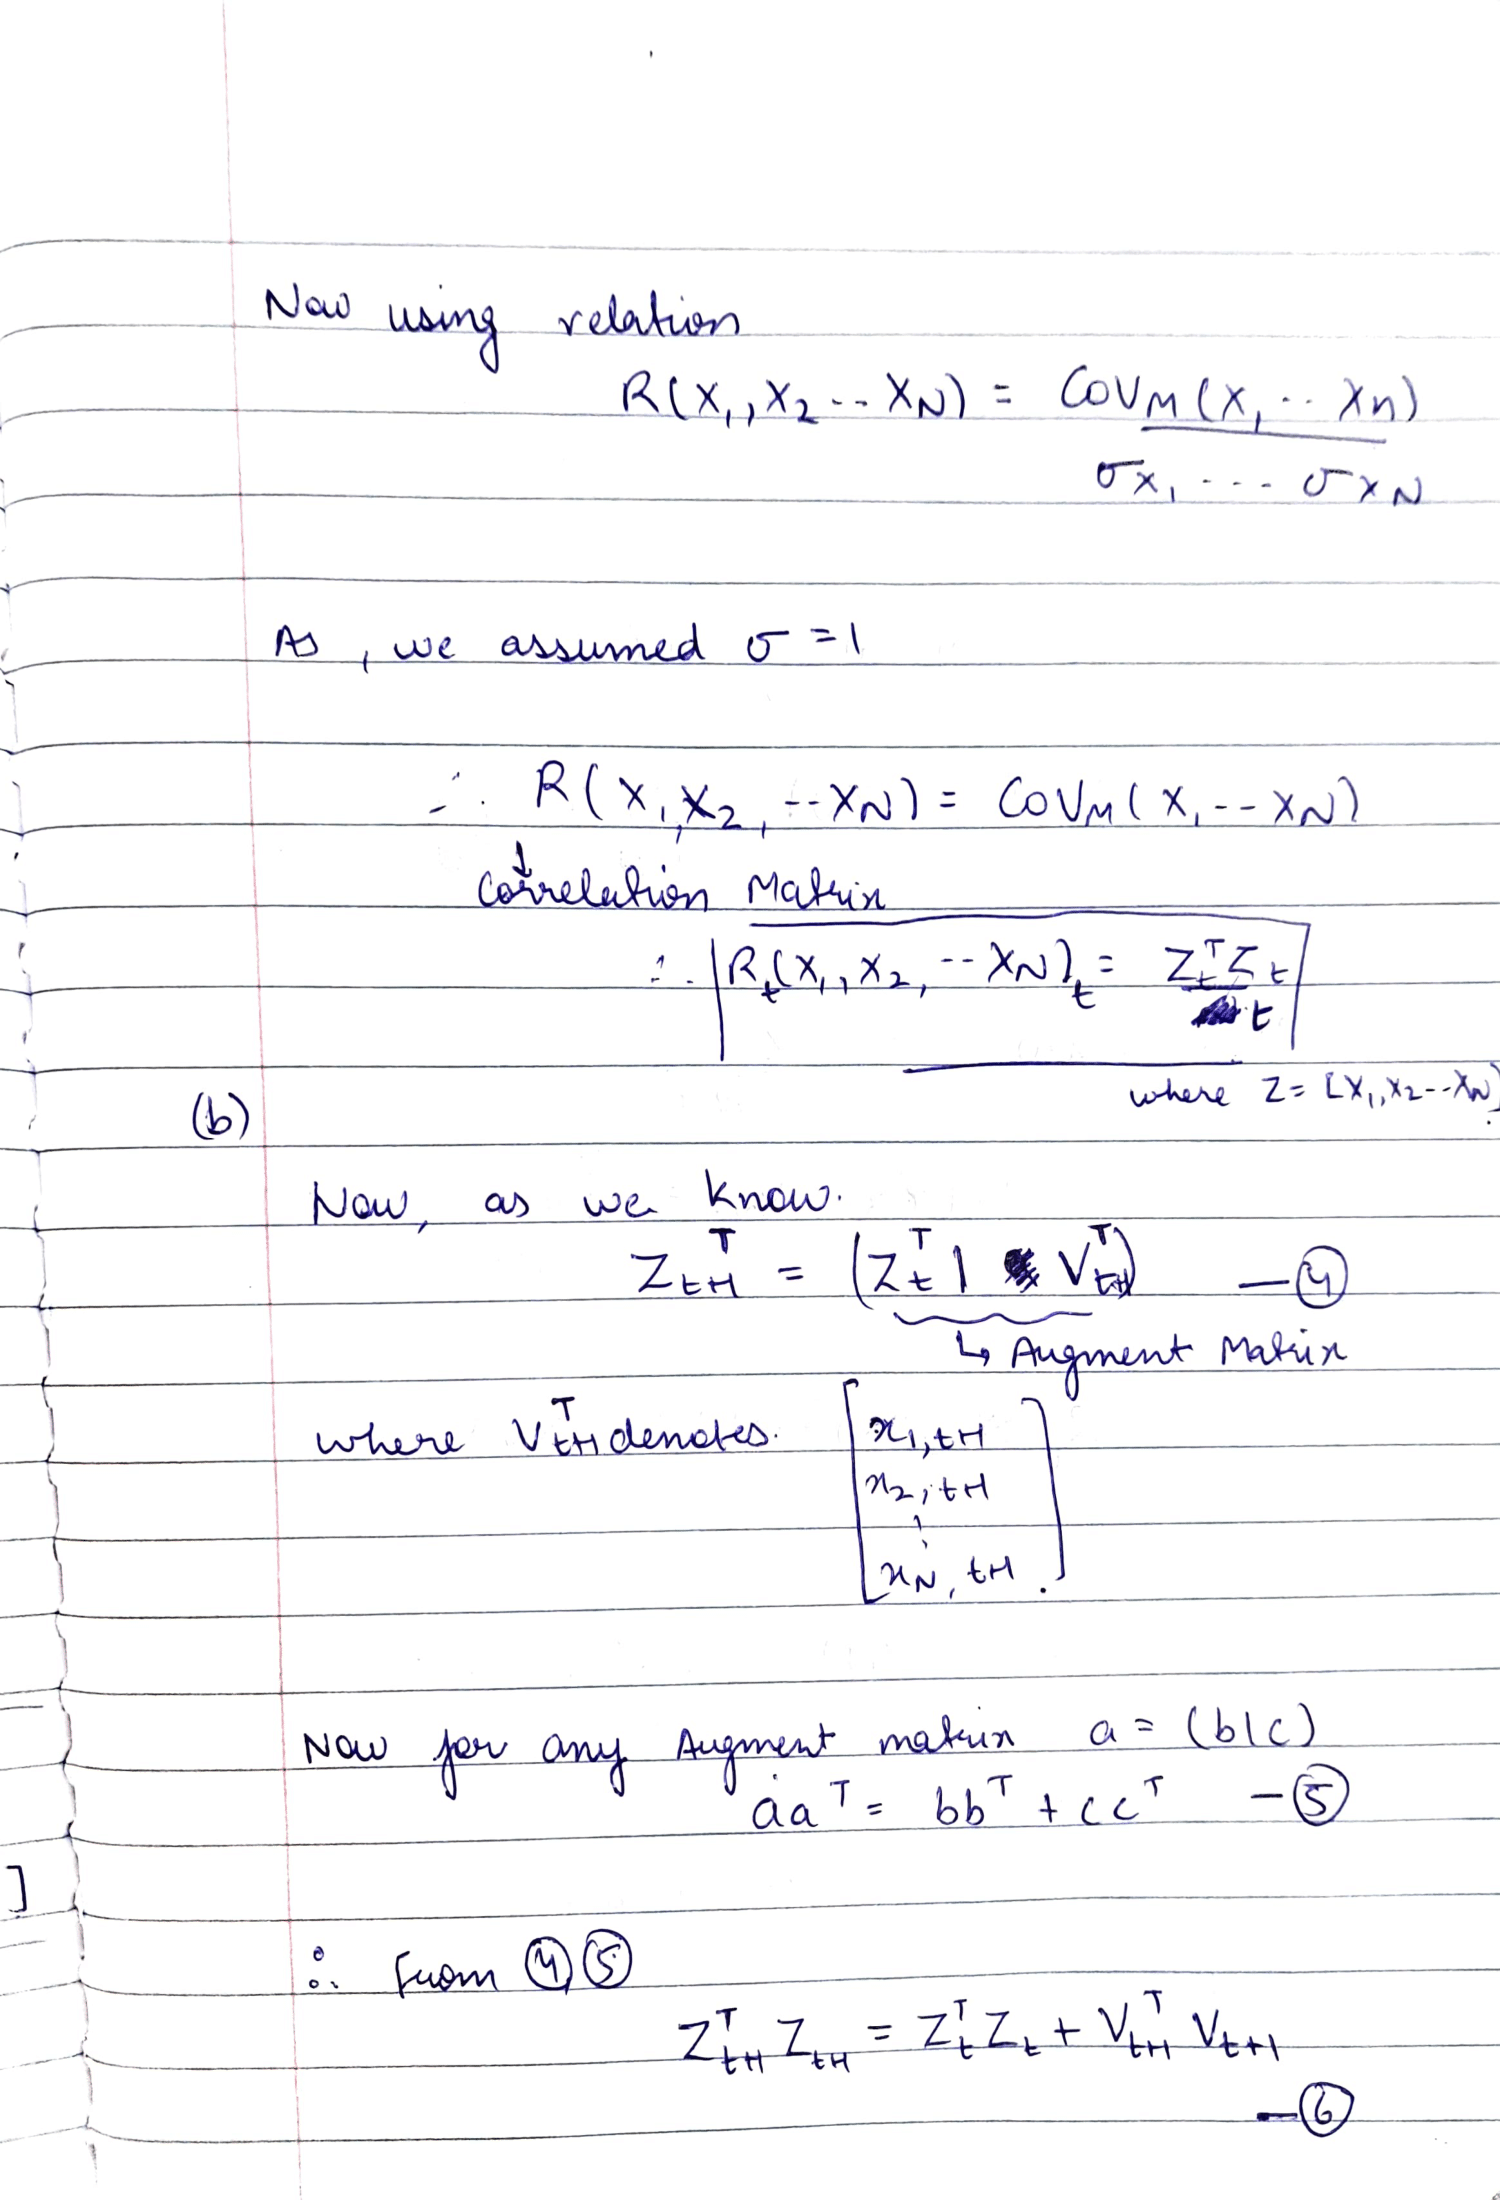 Now using relation
R(X₁, X₂ -- X_N) = COV_M (X₁ -- X_n)
σ_X₁ --- σ_X_N
As, we assumed σ = 1
∴ R(X₁, X₂, -- X_N) = COV_M (X₁ -- X_N)
↓
Correlation Matrix
∴ R_t(X₁, X₂, -- X_N)_t = Z_t^T Z_t
t
where Z = [X₁, X₂ -- X_N]
(b)
Now, as we know.
Z_{t+1}^T = (Z_t^T | V_{t+1}^T) — ④
↳ Augment Matrix
where V_{t+1}^T denotes. [x_{1,t+1}
x_{2,t+1}
⋮
x_{N,t+1}]
Now for any Augment matrix a = (b|c)
aa^T = bb^T + cc^T — ⑤
∴ from ④, ⑤
Z_{t+1}^T Z_{t+1} = Z_t^T Z_t + V_{t+1}^T V_{t+1}
— ⑥
]